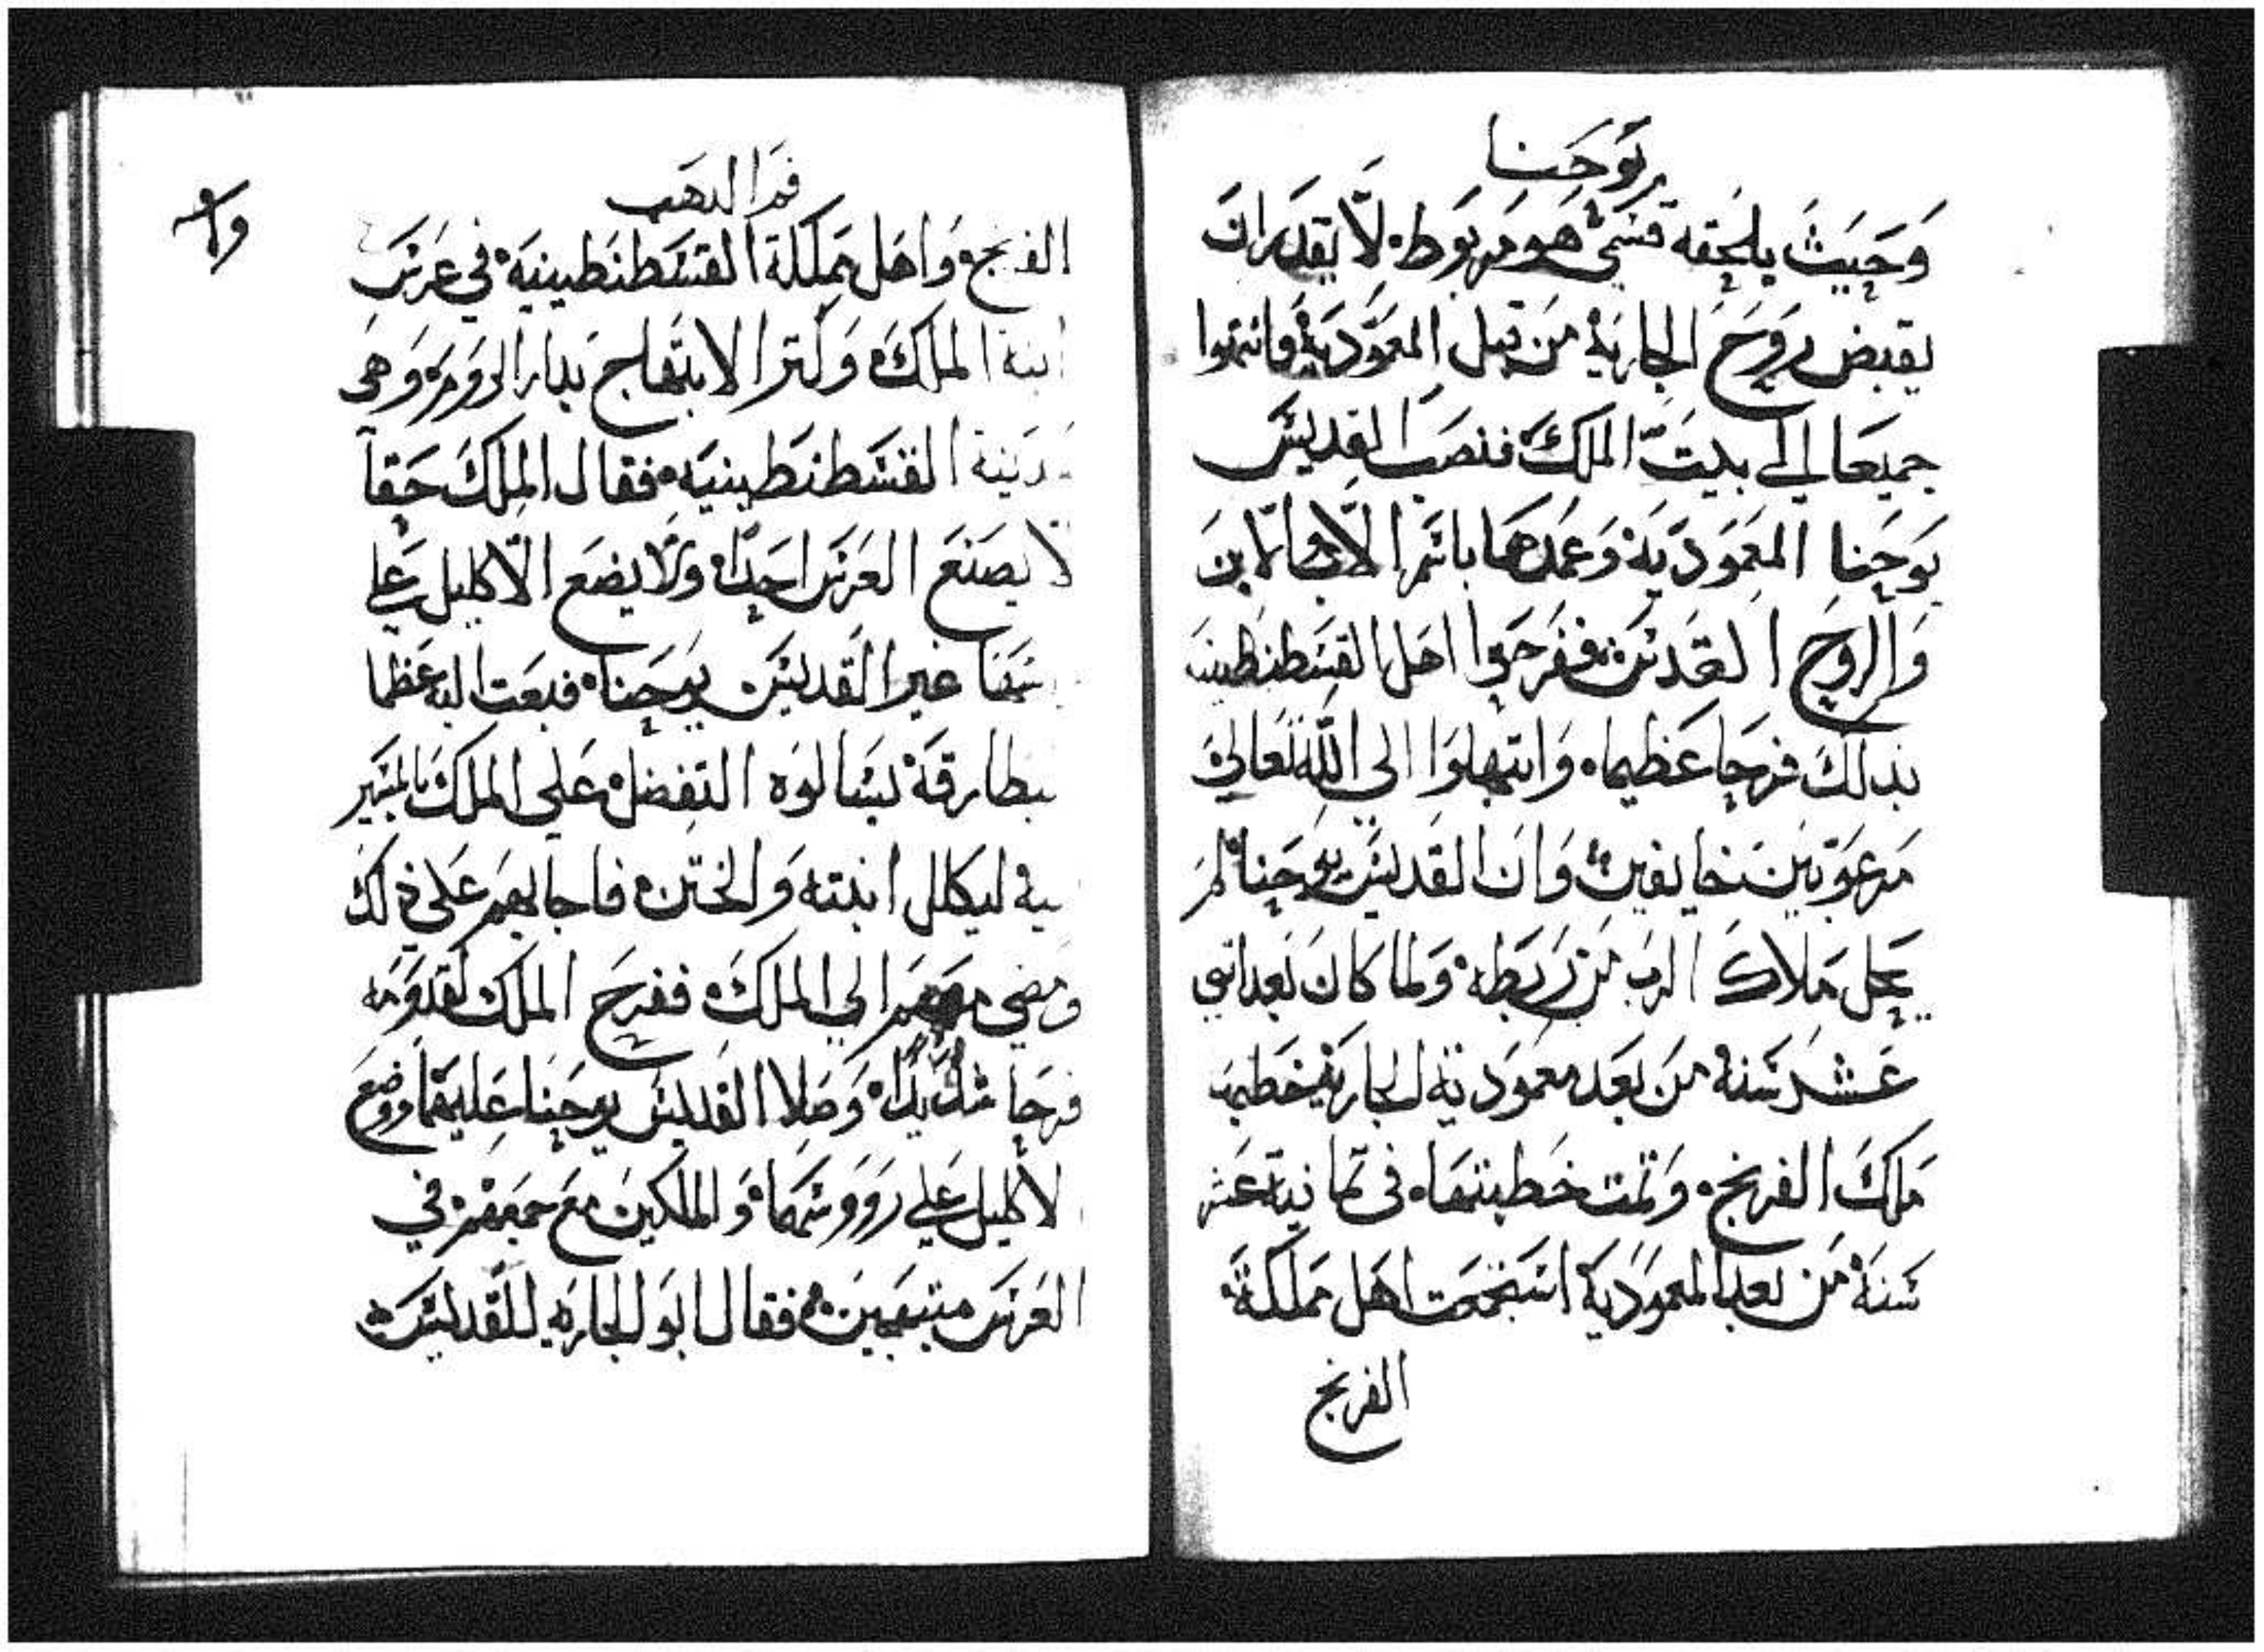 يوحنا
وحيث يلحقه قسمي هو مربوط لا يقدر ان
يقبض روح الجاريه من قبل المعموديه فاتموا
جميعا الي بيت الملك فنصب القديس
يوحنا المعموديه وعمدها باسم الاب والابن
والروح القدس ففرحوا اهل القسطنطينيه
بذلك فرحا عظيما وابتهلوا الي الله تعالي
مرعوبين خايفين وان القديس يوحنا لم
يحل ملاك الرب من ربطه ولما كان بعد اثني
عشر سنة من بعد معمودية الجاريه خطبها
ملك الفرنج وتمت خطبتها في ثمانية عشر
سنة من بعد المعمودية استجمعت اهل مملكة
الفرنج
فم الدهب
الفرنج واهل مملكة القسطنطينيه في عرس
ابنة الملك وكثر الابتهاج بدار الرومر وهي
مدينة القسطنطينيه فقال الملك حقا
لا يصنع العرس احدا ولا يضع الاكليل علي
غير القديس يوحنا فبعت اليه عظما
بطارقة يسالوه التفضل علي الملك بالمسير
ليكلل ابنته والختن فاجابهم علي ذلك
ومضي معهم الي الملك ففرح الملك لقدومه
فرحا شديدا وصلا القديس يوحنا عليهما ووضع
الاكليل علي رووسهما والملكين مع جمعهم في
العرس مبتهجين فقال ابو الجاريه للقديس